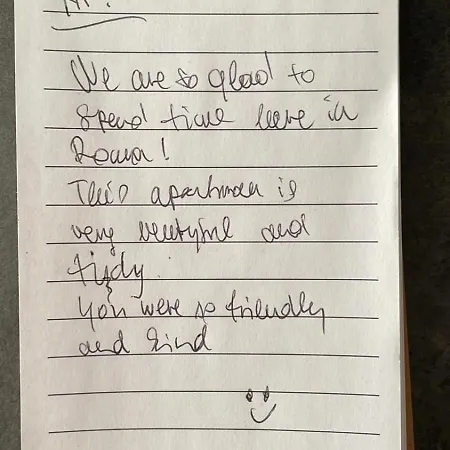 Hi!
We are so glad to
spend time here in
Roma!
This apartman is
very beutyful and
tiydy.
You were so friendly
and kind